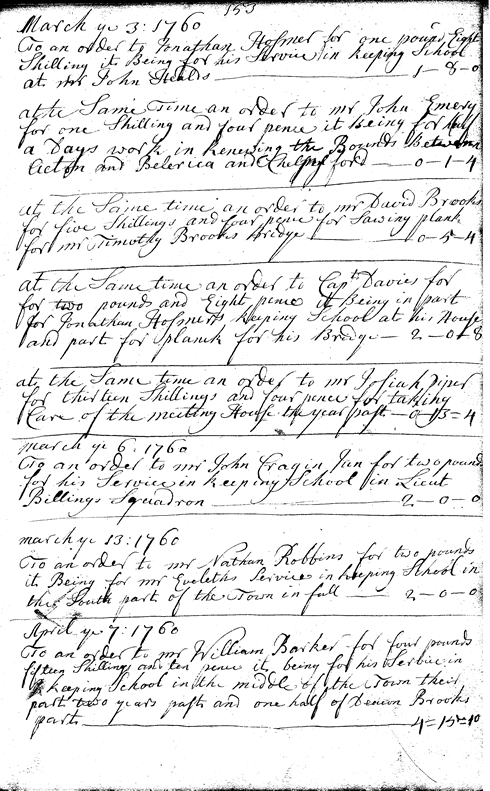 153
March ye 3: 1760
To an order to Jonathan Hosmer for one pound Eight
Shilling it Being for his Service in keeping School
at mr John Healds — 1-8-0
at the Same time an order to mr John Emery
for one Shilling and four pence it being for half
a Days work in Renewing the Bounds Between
Acton and Belerica and Chelmsford — 0-1-4
at the Same time an order to mr David Brooks
for five Shillings and four pence for Sawing plank
for mr Timothy Brooks Bridge — 0-5-4
at the Same time an order to Capt Davies for
for two pounds and Eight pence it Being in part
for Jonathan Hosmers keeping School at his House
and part for Splanck for his Bredge — 2-0-8
at the Same time an order to mr Josiah Piper
for thirteen Shillings and four pence for taking
Care of the meeting House the year past — 0-13-4
march ye 6: 1760
To an order to mr John Cragin Jun for two pounds
for his Service in keeping School in Lieut
Billings Squadron — 2-0-0
march ye 13: 1760
To an order to mr Nathan Robbins for two pounds
it Being for mr Eveleths Service in keeping School in
the South part of the Town in full — 2-0-0
April ye 7: 1760
To an order to mr William Barker for four pounds
fifteen Shillings and ten pence it being for his Service in
keeping School in the middle of the Town their
part two years past and one half of Deacon Brooks
part — 4-15-10